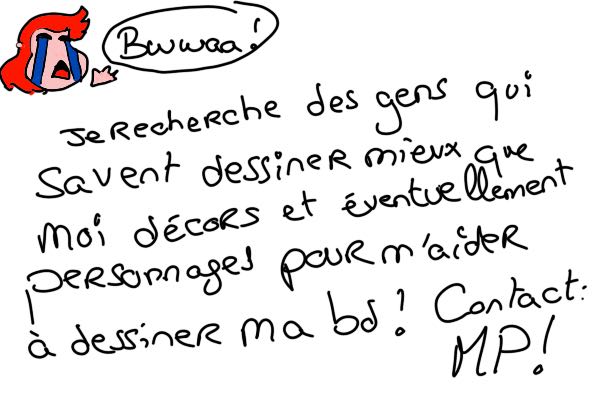 Bwwaa!
Je recherche des gens qui
savent dessiner mieux que
moi décors et éventuellement
personnages pour m'aider
à dessiner ma bd! Contact:
MP!